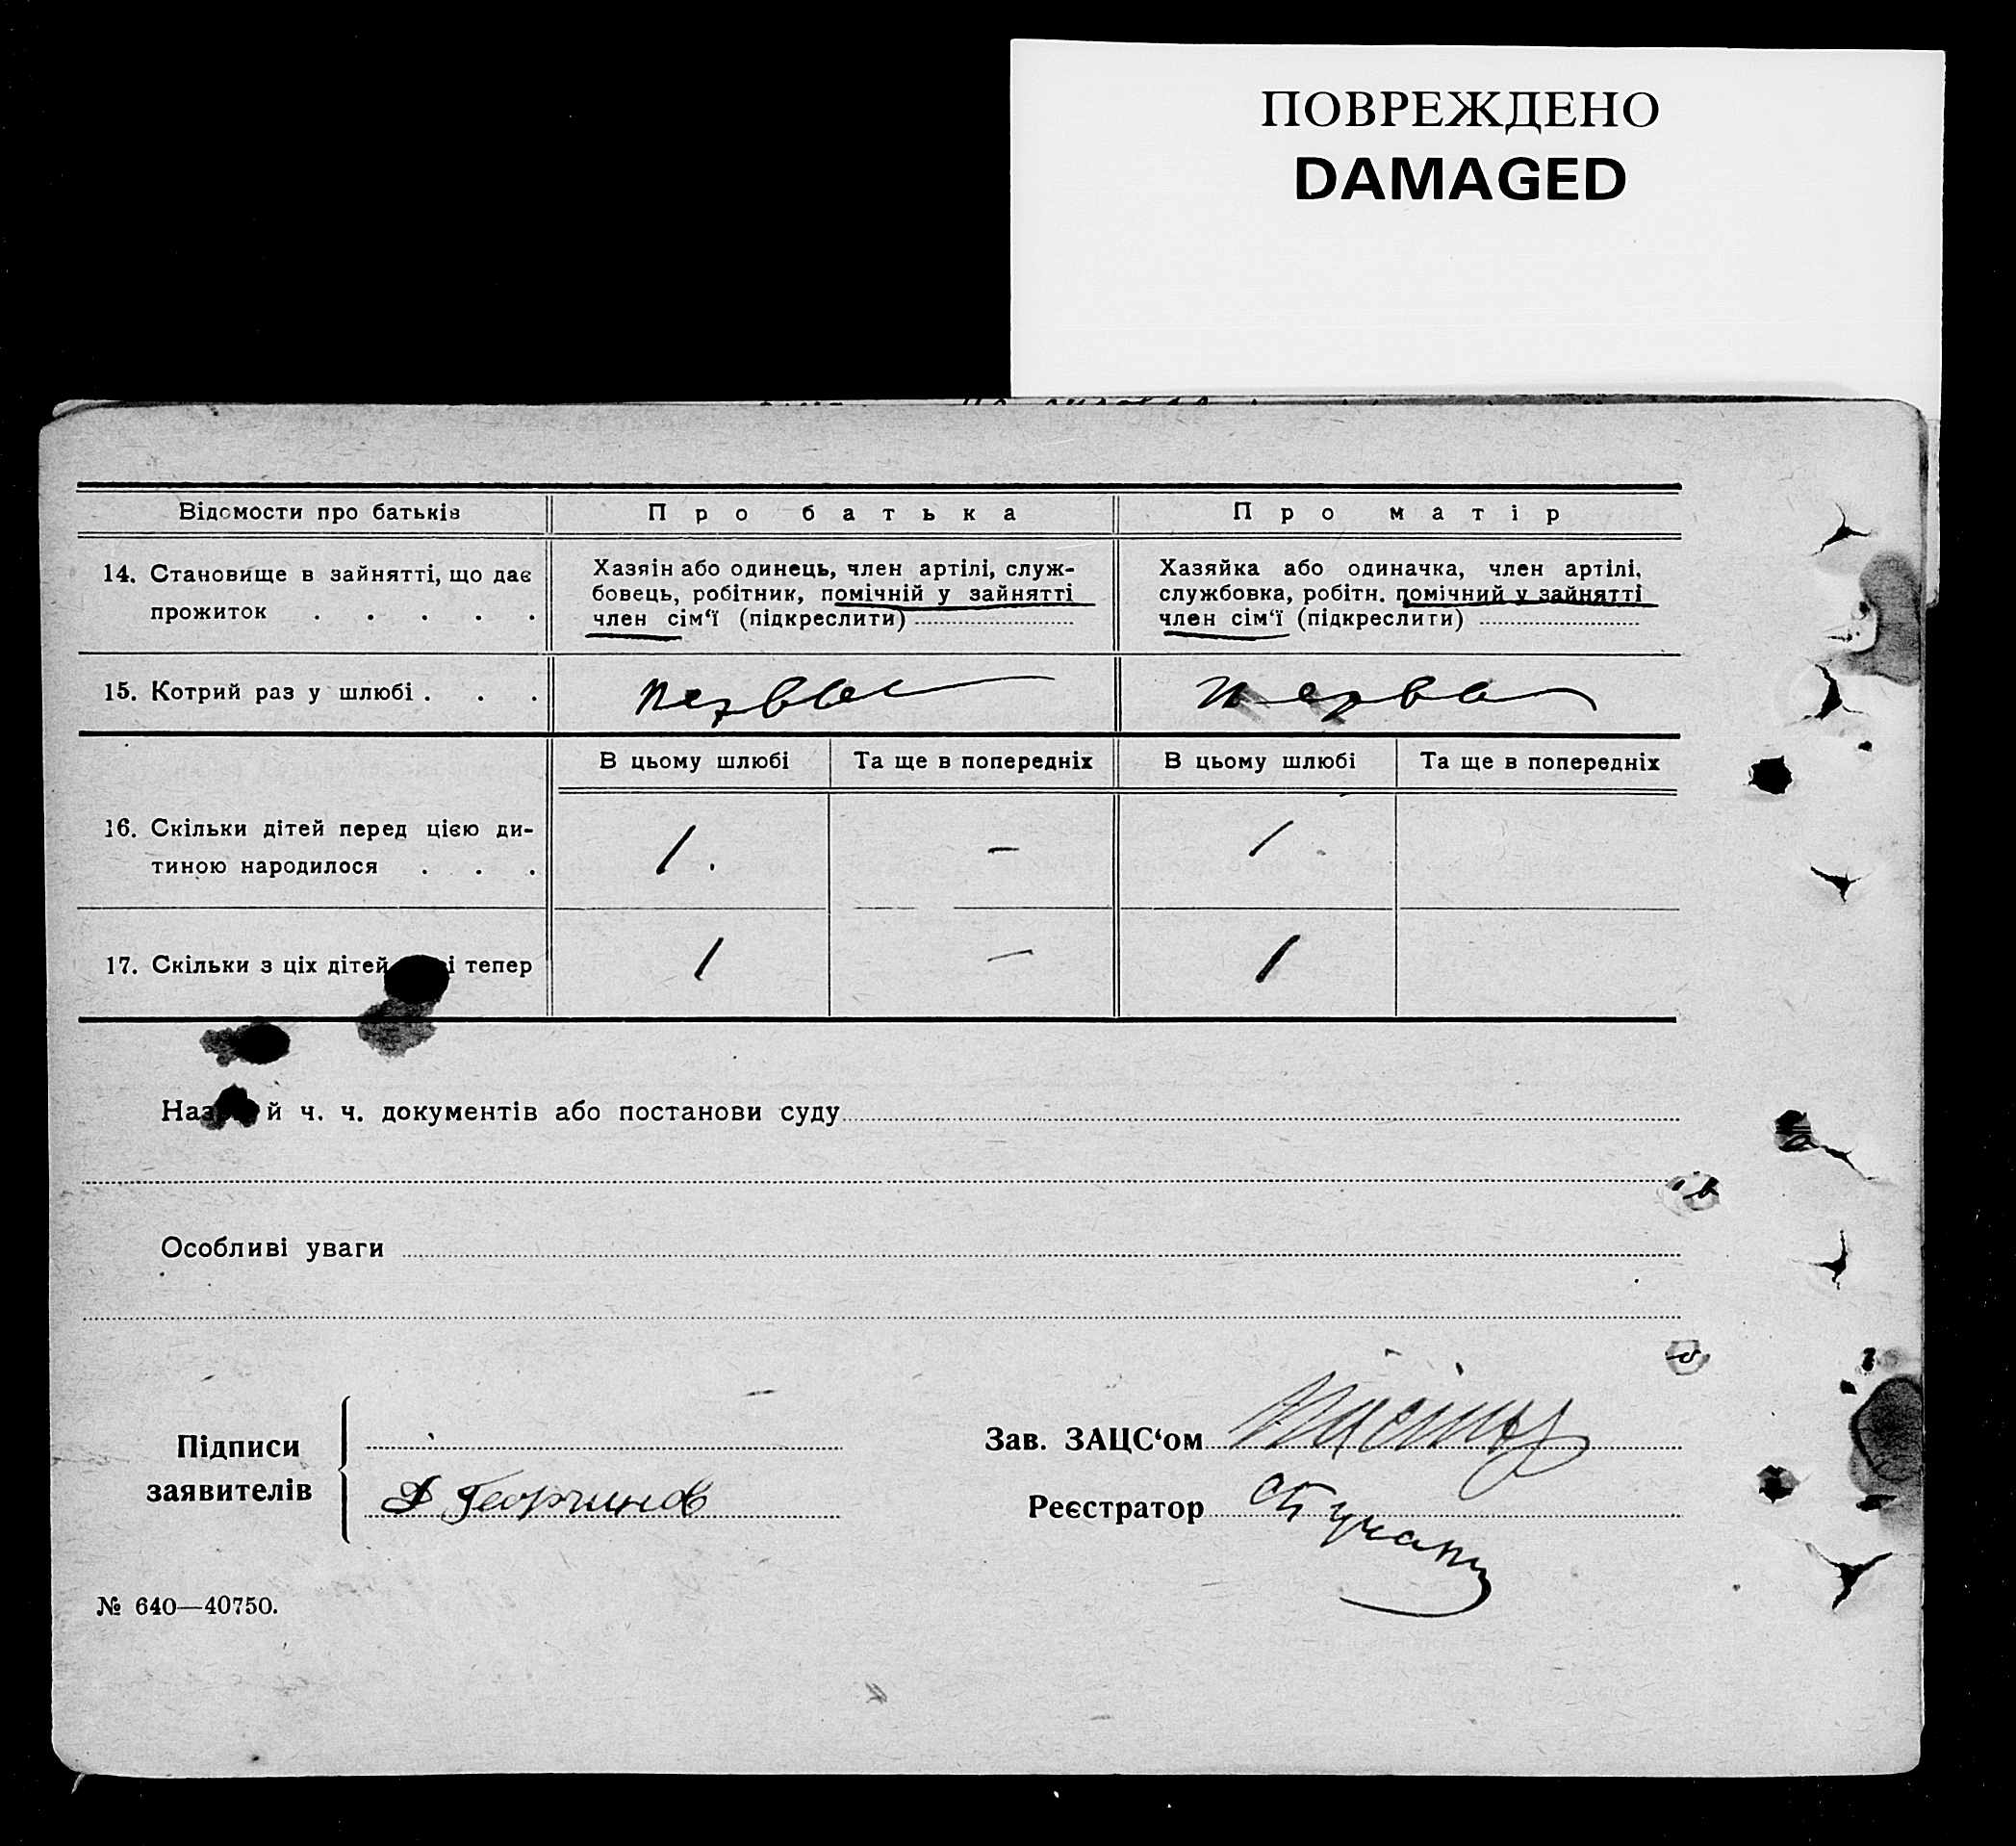 ПОВРЕЖДЕНО
DAMAGED
Відомости про батьків
Про батька
Про матір
14. Становище в зайнятті, що дає
прожиток . . . . .
Хазяін або одинець, член артілі, служ-
бовець, робітник, помічній у зайнятті
член сім‘ї (підкреслити)
Хазяйка або одиначка, член артілі,
службовка, робітн. помічний у зайнятті
член сім‘ї (підкреслити)
15. Котрий раз у шлюбі . . .
первы
перва
В цьому шлюбі
Та ще в попередніх
В цьому шлюбі
Та ще в попередніх
16. Скільки дітей перед цією ди-
тиною народилося . . .
1.
–
1
17. Скільки з ціх дітей і тепер
1
–
1
Наз й ч. ч. документів або постанови суду
Особливі уваги
Підписи
заявителів
Зав. ЗАЦС‘ом
Реєстратор
№ 640—40750.